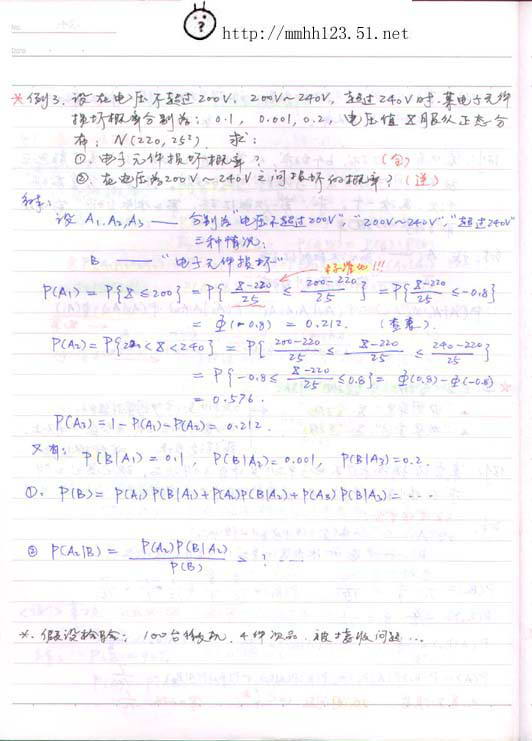 http://mmhh123.51.net
No.
Date
* 例3. 设在电压不超过200V, 200V~240V, 超过240V时, 某电子元件
损坏概率分别为: 0.1, 0.001, 0.2, 电压值X服从正态分
布, N(220, 25²). 求:
①. 电子元件损坏概率? (全)
②. 在电压为200V~240V之间损坏的概率? (逆)
解:
设 A₁.A₂,A₃ —— 分别为"电压不超过200V", "200V~240V", "超过240V"
三种情况.
B —— "电子元件损坏"
标准化!!!
P(A₁) = P{X≤200} = P{ (X-220)/25 ≤ (200-220)/25 } = P{ (X-220)/25 ≤ -0.8}
= Φ(-0.8) = 0.212. (查表).
P(A₂) = P{200<X<240} = P{ (200-220)/25 ≤ (X-220)/25 ≤ (240-220)/25 }
= P{-0.8≤ (X-220)/25 ≤0.8} = Φ(0.8)-Φ(-0.8)
= 0.576.
P(A₃) = 1-P(A₁)-P(A₂) = 0.212.
又有: P(B|A₁) = 0.1, P(B|A₂) = 0.001, P(B|A₃) = 0.2.
①. P(B) = P(A₁)P(B|A₁)+P(A₂)P(B|A₂)+P(A₃)P(B|A₃) = ...
② P(A₂|B) = P(A₂)P(B|A₂) / P(B) = ? ...
*. 假设检验: 100台微机, 4件次品, 被接收问题...